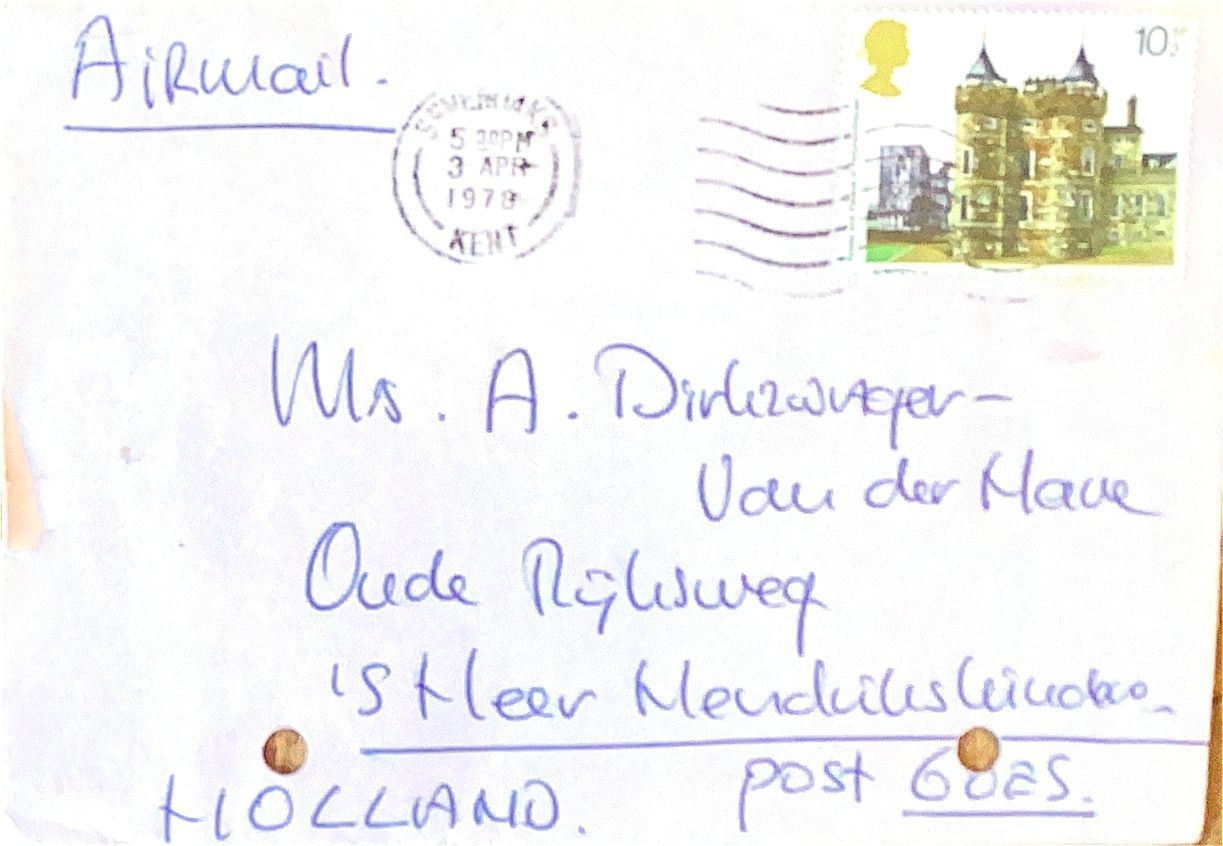 AiRmail.
SEVENOAKS
5 30PM
3 APR
1978
KENT
10½P
Ms. A. Dirkzwager-
Van der Have
Oude Rijksweg
's Heer Hendrikskinderen
HOLLAND. post GOES.